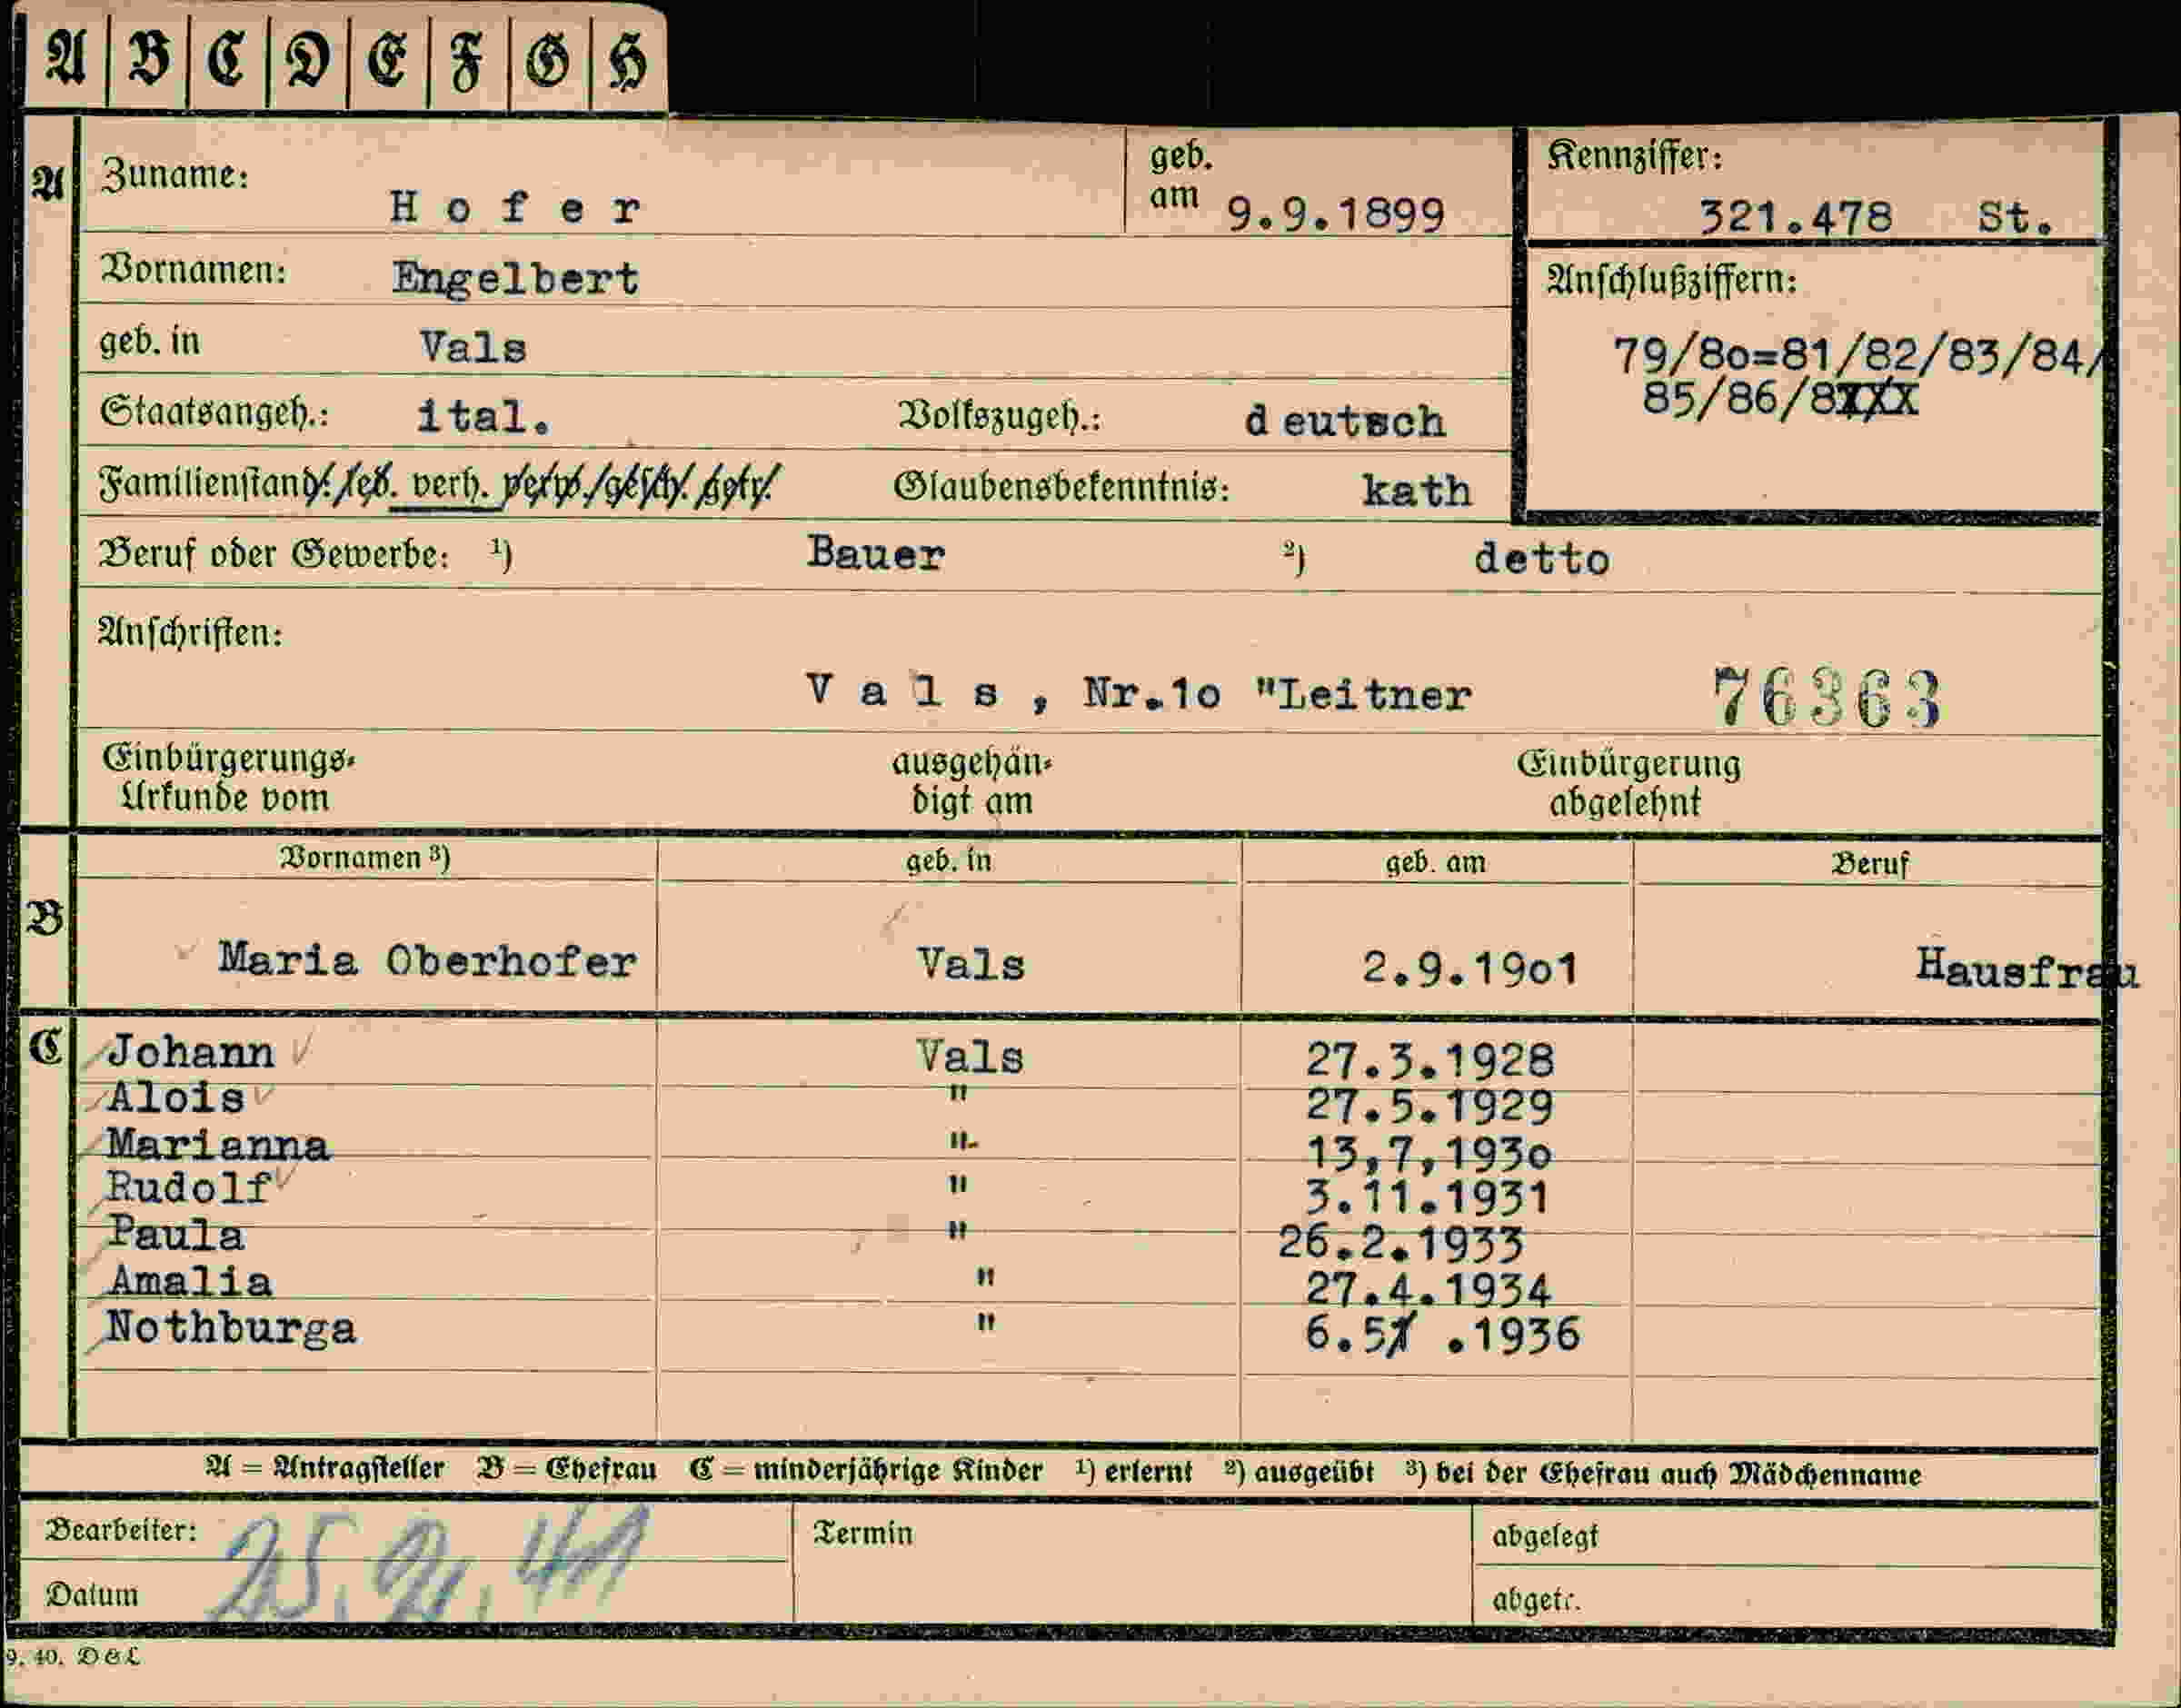 A B C D E F G H
A Zuname: Hofer geb. am 9.9.1899 Kennziffer: 321.478 St.
Vornamen: Engelbert Anschlußziffern:
geb. in Vals 79/8o=81/82/83/84/
85/86/8
Staatsangeh.: ital. Volkszugeh.: deutsch
Familienstand: led. verh. verw. gesch. getr. Glaubensbekenntnis: kath
Beruf oder Gewerbe: 1) Bauer 2) detto
Anschriften:
Vals, Nr.1o "Leitner 76363
Einbürgerungs-Urkunde vom ausgehändigt am Einbürgerung abgelehnt
Vornamen 3) geb. in geb. am Beruf
B Maria Oberhofer Vals 2.9.19o1 Hausfrau
C Johann Vals 27.3.1928
Alois " 27.5.1929
Marianna " 13,7,193o
Rudolf " 3.11.1931
Paula " 26.2.1933
Amalia " 27.4.1934
Nothburga " 6.5 .1936
A = Antragsteller B = Ehefrau C = minderjährige Kinder 1) erlernt 2) ausgeübt 3) bei der Ehefrau auch Mädchenname
Bearbeiter: Termin abgelegt
Datum abgetr.
9. 40. D & L